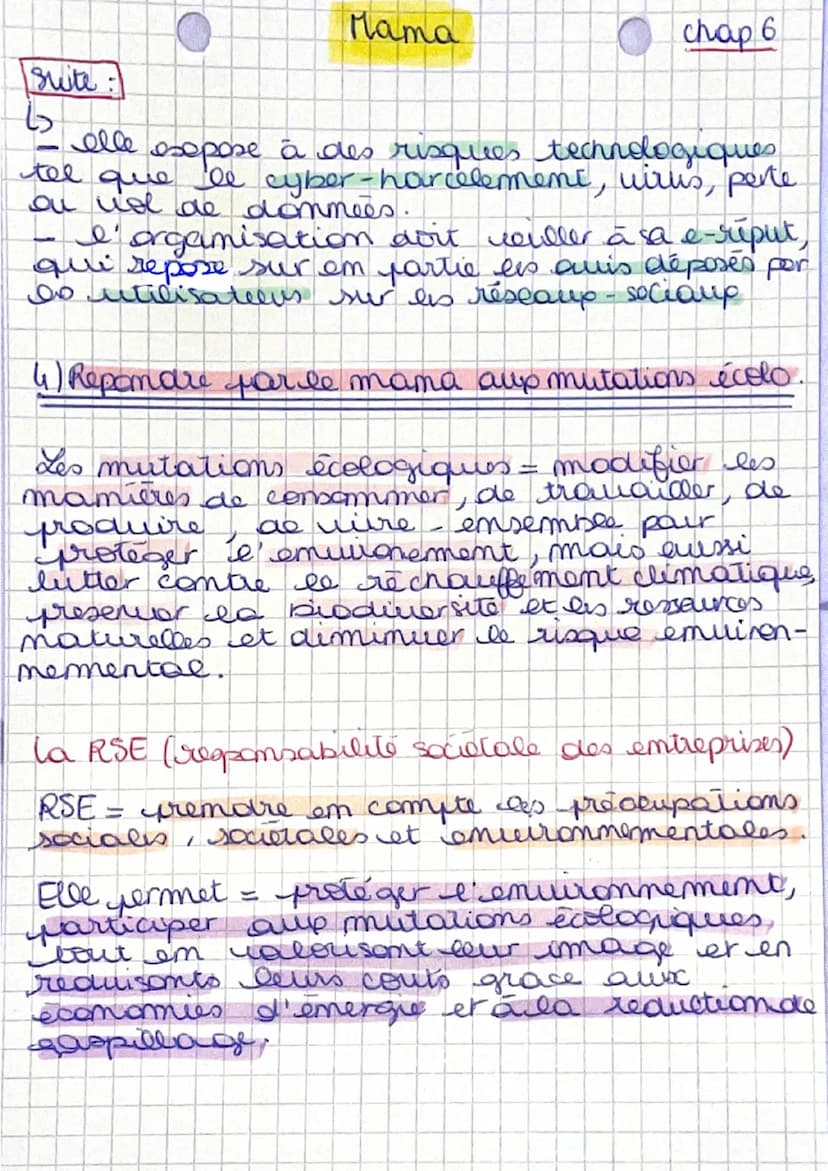 Mama
chap 6
suite :
↳
- elle expose à des risques technologiques
tel que le cyber-harcelement, virus, perte
ou vol de données.
- l'organisation doit veiller à sa e-réput,
qui repose sur em partie les avis déposés par
les utilisateurs sur les réseaux-sociaux
4) Repondre par le mama aux mutations écolo.
Les mutations écologiques = modifier les
manières de consommer, de travailler, de
produire, de vivre - ensemble pour
protéger l'environement, mais aussi
lutter contre le réchauffement climatique,
preserver la biodiversité et les ressources
naturelles et diminuer le risque environ-
nemental.
la RSE (responsabilité sociétale des entreprises)
RSE = prendre em compte les préocupations
sociales, sociétales et environnementales.
Elle permet = protéger l'environnement,
participer aux mutations écologiques,
tout em valorisant leur image et en
reduisants leurs couts grace aux
économies d'énergie et à la reduction de
gaspillage.